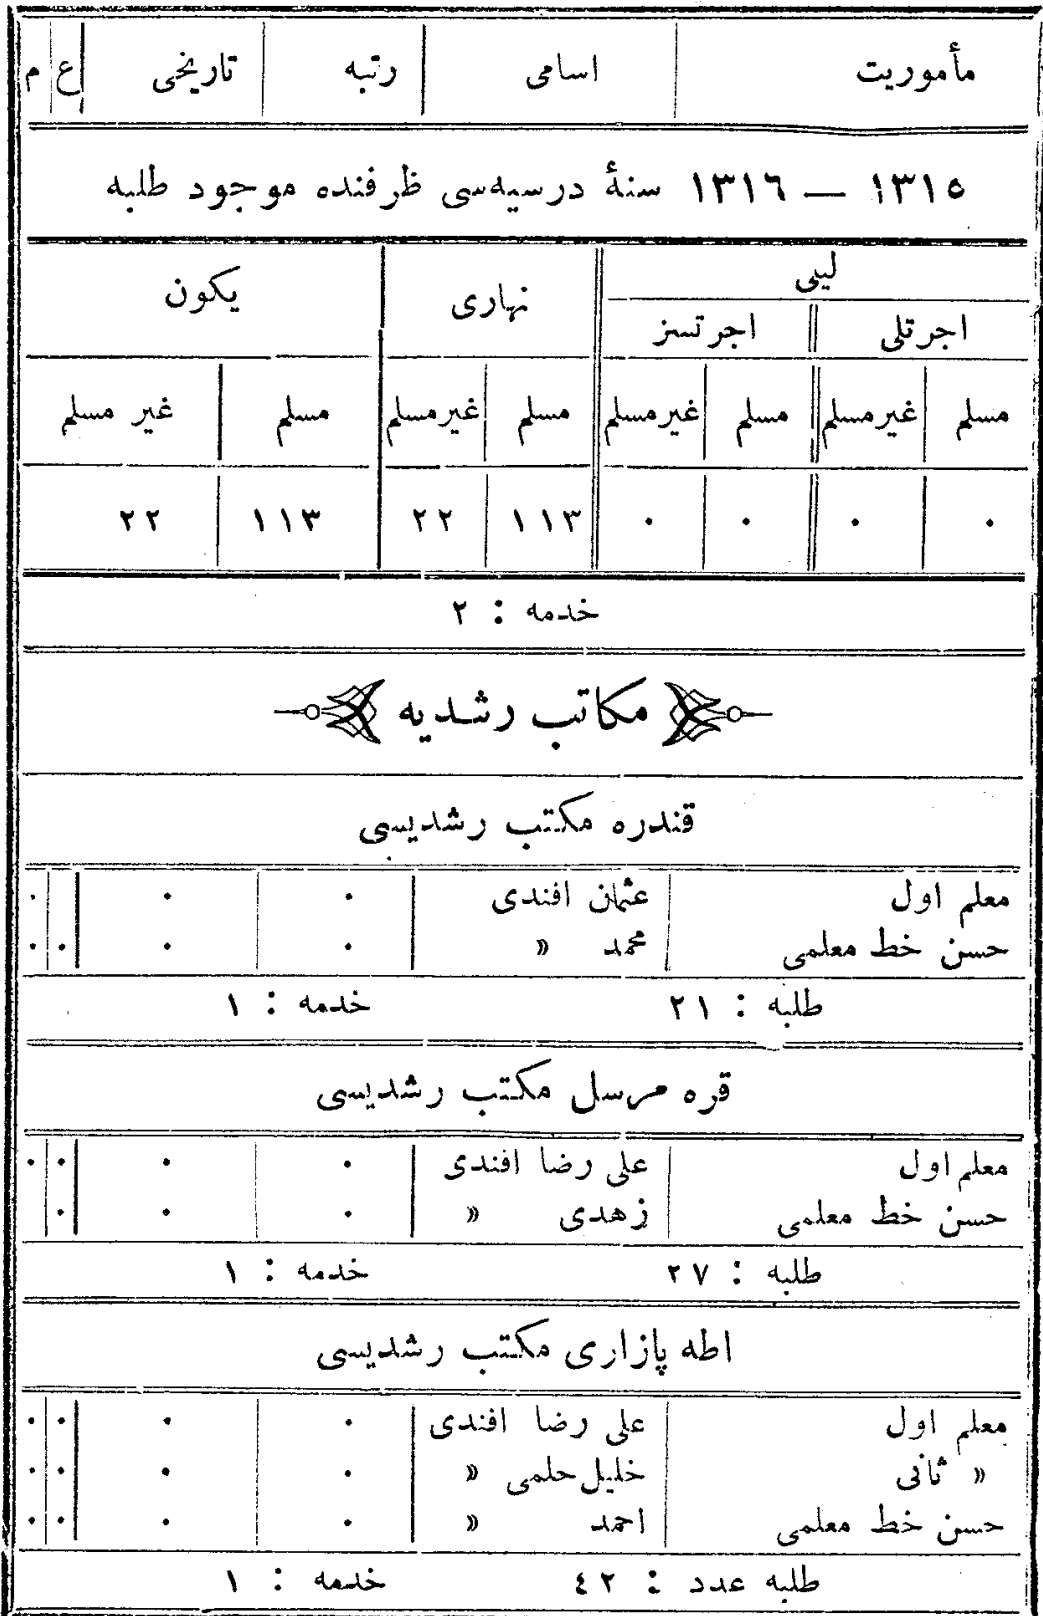 مأموریت اسامی رتبه تاریخی ع م
١٣١٥ — ١٣١٦ سنۀ درسیه‌سی ظرفنده موجود طلبه
لیلی نهاری یکون
اجرتلی اجرتسز
مسلم غیرمسلم مسلم غیرمسلم مسلم غیرمسلم مسلم غیر مسلم
٠ ٠ ٠ ٠ ١١٣ ٢٢ ١١٣ ٢٢
خدمه : ٢
مکاتب رشدیه
قندره مکتب رشدیسی
معلم اول عثمان افندی ٠ ٠ ٠
حسن خط معلمی محمد » ٠ ٠ ٠ ٠
طلبه : ٢١ خدمه : ١
قره مرسل مکتب رشدیسی
معلم اول علی رضا افندی ٠ ٠ ٠ ٠
حسن خط معلمی زهدی » ٠ ٠ ٠
طلبه : ٢٧ خدمه : ١
اطه پازاری مکتب رشدیسی
معلم اول علی رضا افندی ٠ ٠ ٠ ٠
» ثانی خلیل حلمی » ٠ ٠ ٠ ٠
حسن خط معلمی احمد » ٠ ٠ ٠ ٠
طلبه عدد : ٤٢ خدمه : ١